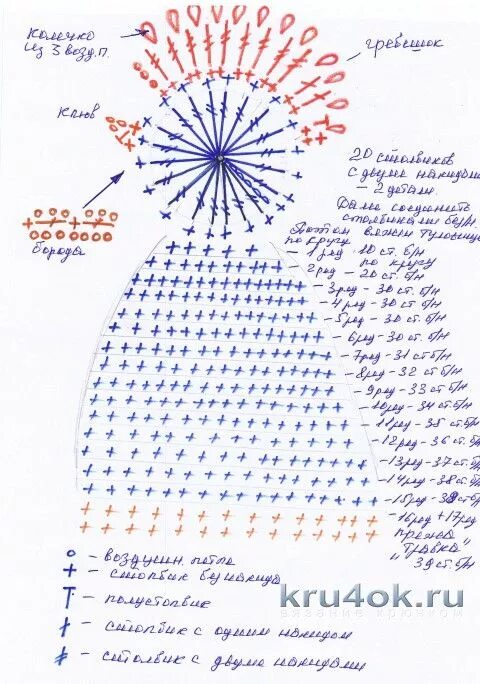 колечко
из 3 возд. п.
гребешок
клюв
20 столбиков
с двумя накидами
– 2 детали.
Далее соединить
столбиками б/н.
Потом вяжем туловище
по кругу
борода
– 1 ряд – 10 ст. б/н
по кругу
– 2 ряд – 20 ст. б/н
– 3 ряд – 30 ст. б/н
– 4 ряд – 30 ст. б/н
– 5 ряд – 30 ст. б/н
– 6 ряд – 30 ст. б/н
– 7 ряд – 31 ст б/н
– 8 ряд – 32 ст б/н
– 9 ряд – 33 ст б/н
– 10 ряд – 34 ст. б/н
– 11 ряд – 35 ст б/н
– 12 ряд – 36 ст. б/н
– 13 ряд – 37 ст. б/н
– 14 ряд – 38 ст. б/н
– 15 ряд – 39 ст б/н
– 16 ряд + 17 ряд
пряжа
"Травка"
39 ст. б/н
– воздушн. петля
– столбик без накида
– полустолбик
– столбик с одним накидом
– столбик с двумя накидами
kru4ok.ru
вязание крючком